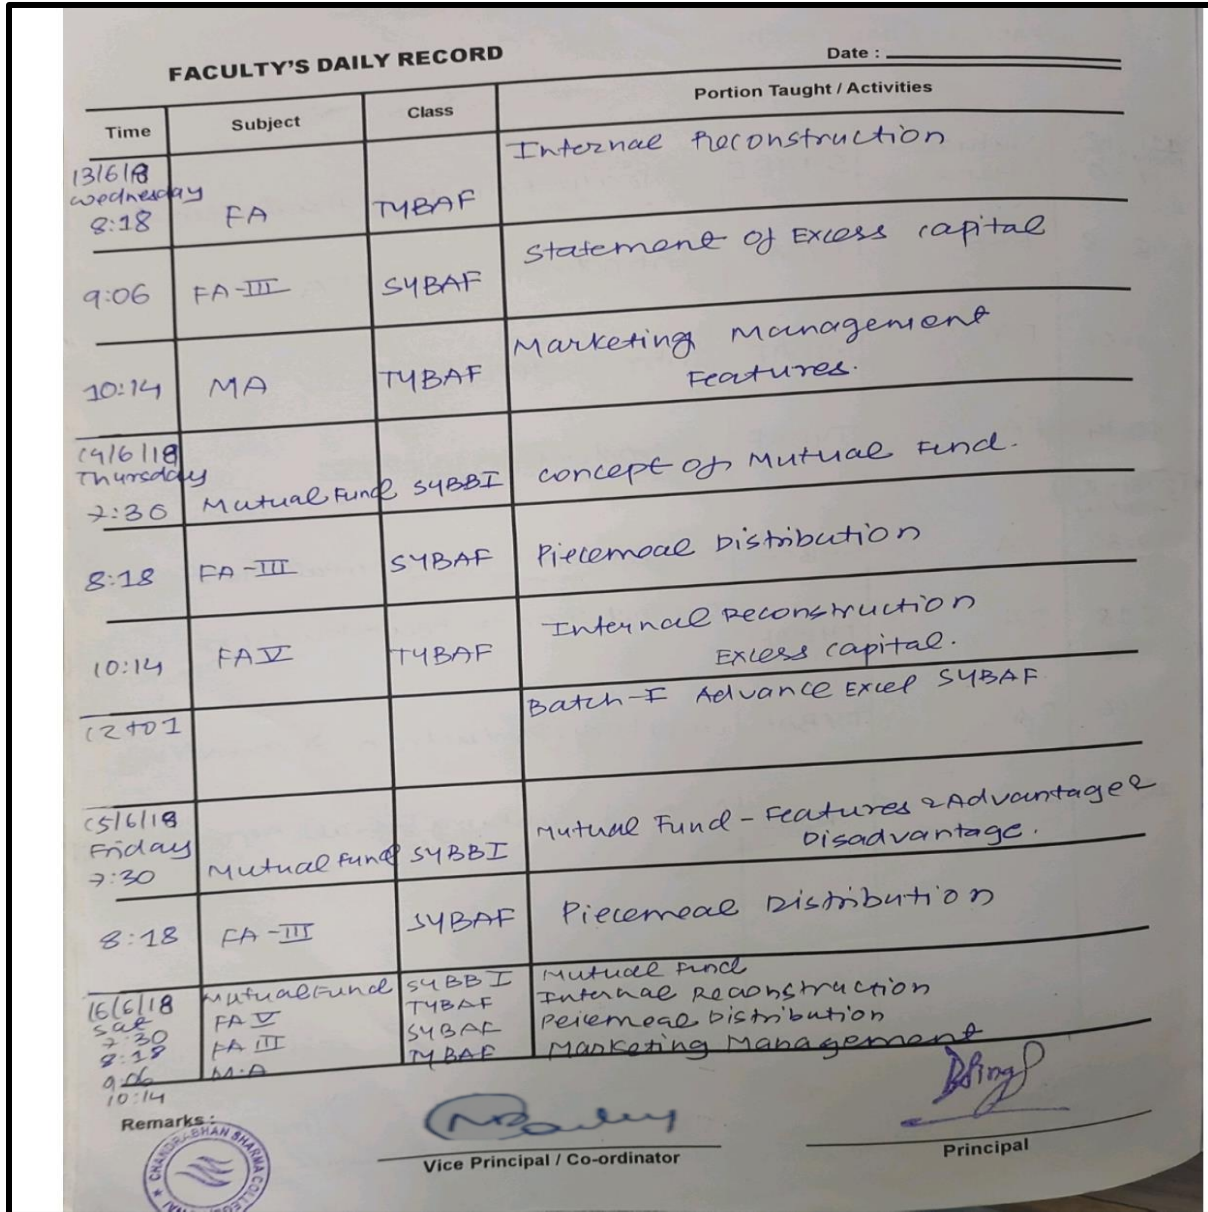 FACULTY'S DAILY RECORD
Date :
Time Subject Class Portion Taught / Activities
13/6/18
Wednesday
8:18 FA TYBAF Internal Reconstruction
9:06 FA-III SYBAF Statement of Excess capital
10:14 MA TYBAF Marketing Management
Features.
14/6/18
Thursday
7:30 Mutual Fund SYBBI concept of Mutual Fund.
8:18 FA-III SYBAF Piecemeal Distribution
10:14 FA V TYBAF Internal Reconstruction
Excess capital.
12 to 1 Batch-I Advance Excel SYBAF
15/6/18
Friday
7:30 Mutual Fund SYBBI Mutual Fund - Features & Advantage &
Disadvantage.
8:18 FA-III SYBAF Piecemeal Distribution
16/6/18
Sat
7:30 Mutual Fund SYBBI Mutual Fund
8:18 FA V TYBAF Internal Reconstruction
9:06 FA III SYBAF Peiemeal Distribution
10:14 M.A TYBAF Marketing Management
Remarks :
Vice Principal / Co-ordinator
Principal
CHANDRABHAN SHARMA COLLEGE